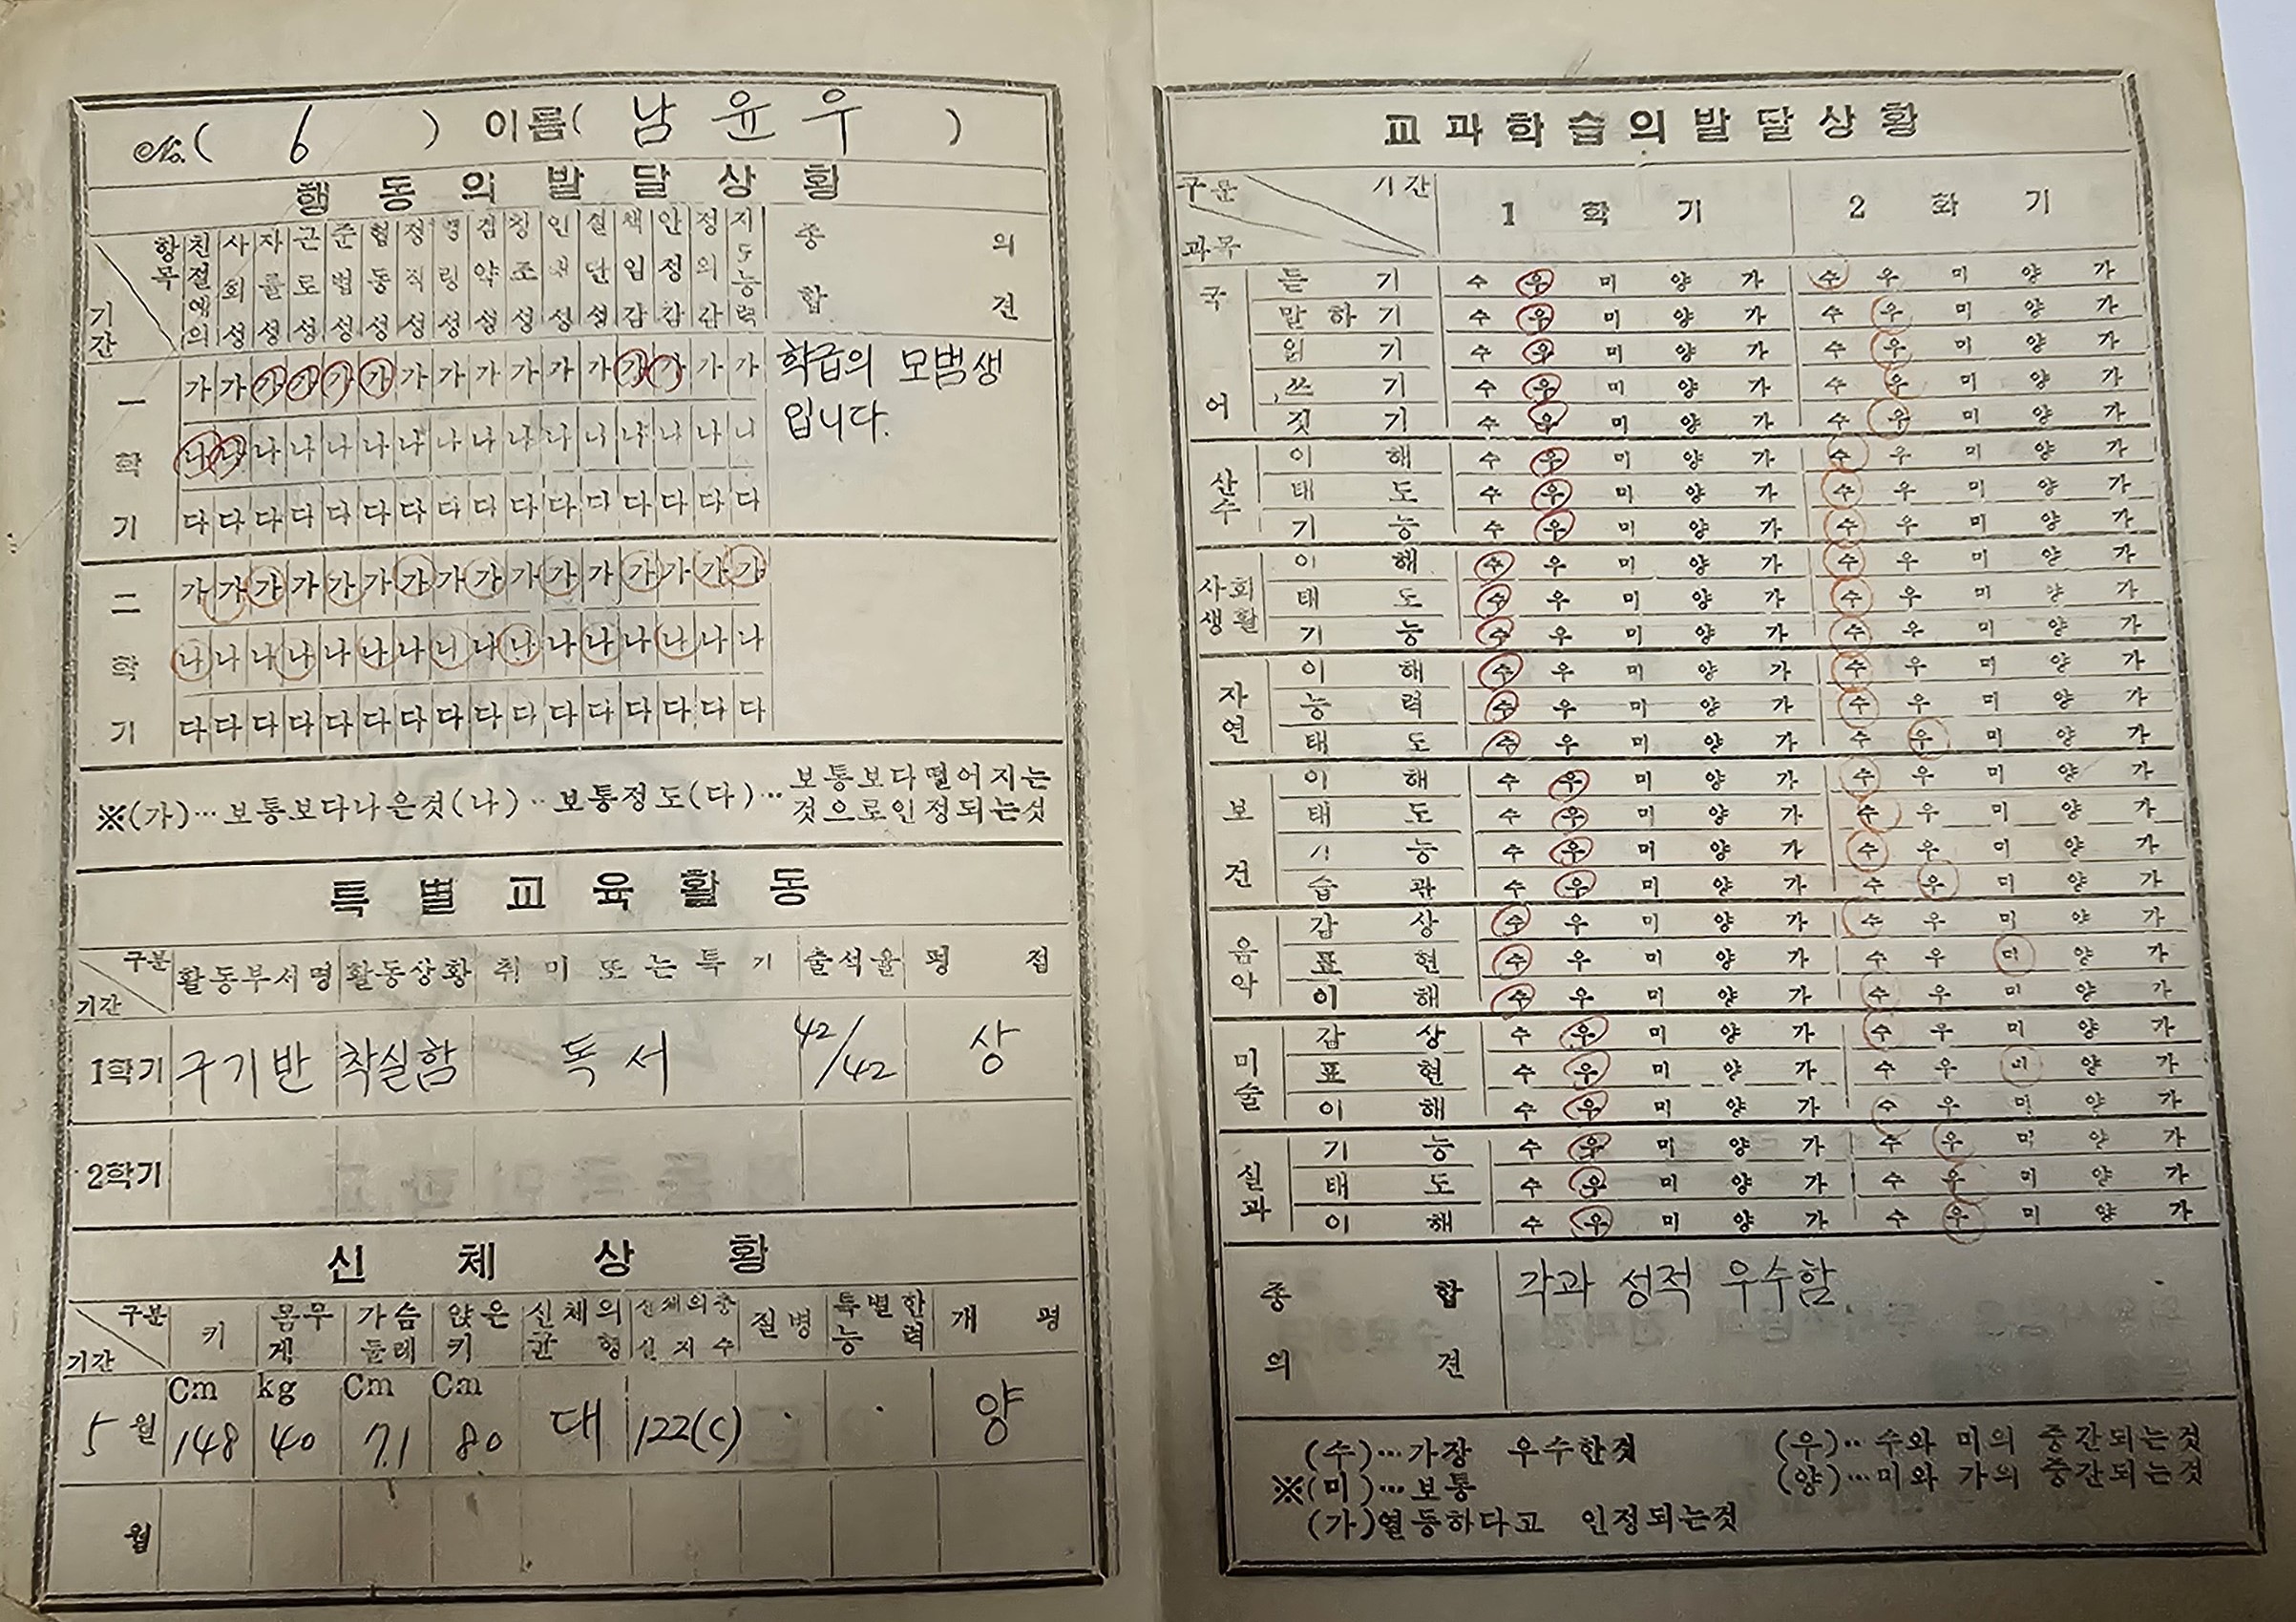 No. ( 6 ) 이름( 남윤우 )
행동의 발달상황
항목 기간 친절예의 사회성 자률성 근로성 준법성 협동성 정직성 명링성 검약성 창조성 인내성 결단성 책임감 안정감 정의감 지도능력 종합의견
一학기
가 가 가 가 가 가 가 가 가 가 가 가 가 가 가 가
나 나 나 나 나 나 나 나 나 나 나 나 나 나 나 나
다 다 다 다 다 다 다 다 다 다 다 다 다 다 다 다
학급의 모범생
입니다.
二학기
가 가 가 가 가 가 가 가 가 가 가 가 가 가 가 가
나 나 나 나 나 나 나 나 나 나 나 나 나 나 나 나
다 다 다 다 다 다 다 다 다 다 다 다 다 다 다 다
※(가)…보통보다나은것(나)‥보통정도(다)…보통보다떨어지는
것으로인정되는것
특별교육활동
구분 기간 활동부서명 활동상황 취미또는특기 출석율 평점
1학기 구기반 착실함 독서 42/42 상
2학기
신체상황
구분 기간 키 몸무게 가슴둘레 앉은키 신체의균형 신체의충실지수 질병 특별한능력 개평
Cm kg Cm Cm
5월 148 40 71 80 대 122(C) · · 양
월
교과학습의발달상황
구분 기간 과목 1 학기 2 학기
국어
듣기 수 우 미 양 가 수 우 미 양 가
말하기 수 우 미 양 가 수 우 미 양 가
읽기 수 우 미 양 가 수 우 미 양 가
쓰기 수 우 미 양 가 수 우 미 양 가
짓기 수 우 미 양 가 수 우 미 양 가
산수
이해 수 우 미 양 가 수 우 미 양 가
태도 수 우 미 양 가 수 우 미 양 가
기능 수 우 미 양 가 수 우 미 양 가
사회생활
이해 수 우 미 양 가 수 우 미 양 가
태도 수 우 미 양 가 수 우 미 양 가
기능 수 우 미 양 가 수 우 미 양 가
자연
이해 수 우 미 양 가 수 우 미 양 가
능력 수 우 미 양 가 수 우 미 양 가
태도 수 우 미 양 가 수 우 미 양 가
보건
이해 수 우 미 양 가 수 우 미 양 가
태도 수 우 미 양 가 수 우 미 양 가
기능 수 우 미 양 가 수 우 미 양 가
습관 수 우 미 양 가 수 우 미 양 가
음악
감상 수 우 미 양 가 수 우 미 양 가
표현 수 우 미 양 가 수 우 미 양 가
이해 수 우 미 양 가 수 우 미 양 가
미술
감상 수 우 미 양 가 수 우 미 양 가
표현 수 우 미 양 가 수 우 미 양 가
이해 수 우 미 양 가 수 우 미 양 가
실과
기능 수 우 미 양 가 수 우 미 양 가
태도 수 우 미 양 가 수 우 미 양 가
이해 수 우 미 양 가 수 우 미 양 가
종합의견 각과 성적 우수함
(수)…가장 우수한것 (우)‥수와 미의 중간되는것
※(미)…보통 (양)…미와 가의 중간되는것
(가)열등하다고 인정되는것